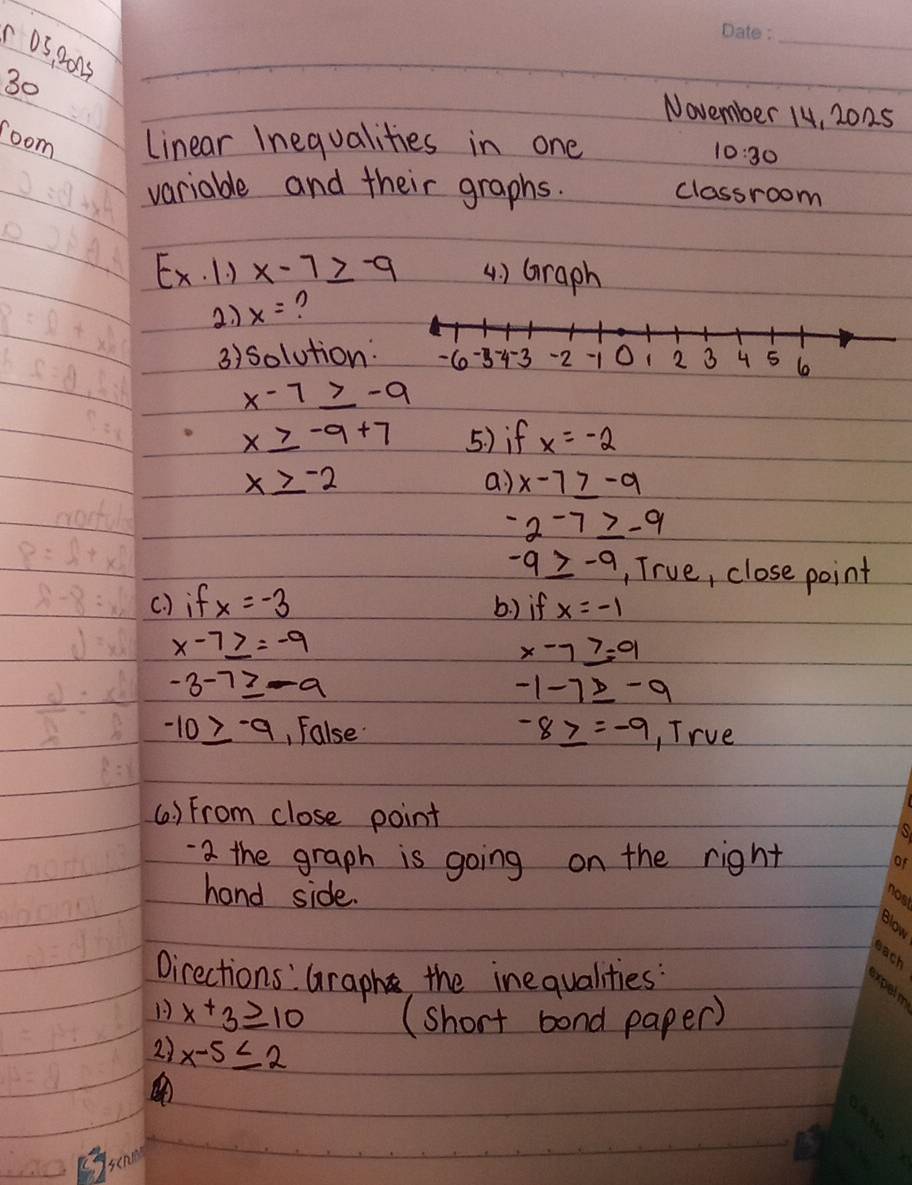 Date :
r 05, 2025
30
room
November 14, 2025
10:30
classroom
Linear Inequalities in one
variable and their graphs.
Ex. 1.) x - 7 ≥ -9
2.) x = ?
3) Solution:
x - 7 ≥ -9
x ≥ -9 + 7
x ≥ -2
4.) Graph
-6 -5 -4 -3 -2 -1 0 1 2 3 4 5 6
5.) if x = -2
a.) x - 7 ≥ -9
-2 - 7 ≥ -9
-9 ≥ -9, True, close point
b.) if x = -1
x - 7 ≥ = 9
-1 - 7 ≥ -9
-8 ≥ = -9, True
c.) if x = -3
x - 7 ≥ = -9
-3 - 7 ≥ -9
-10 ≥ -9, False.
6.) From close point
-2 the graph is going on the right
hand side.
Directions: Graph the inequalities:
1.) x + 3 ≥ 10 (short bond paper)
2.) x - 5 ≤ 2
of
Blow
each